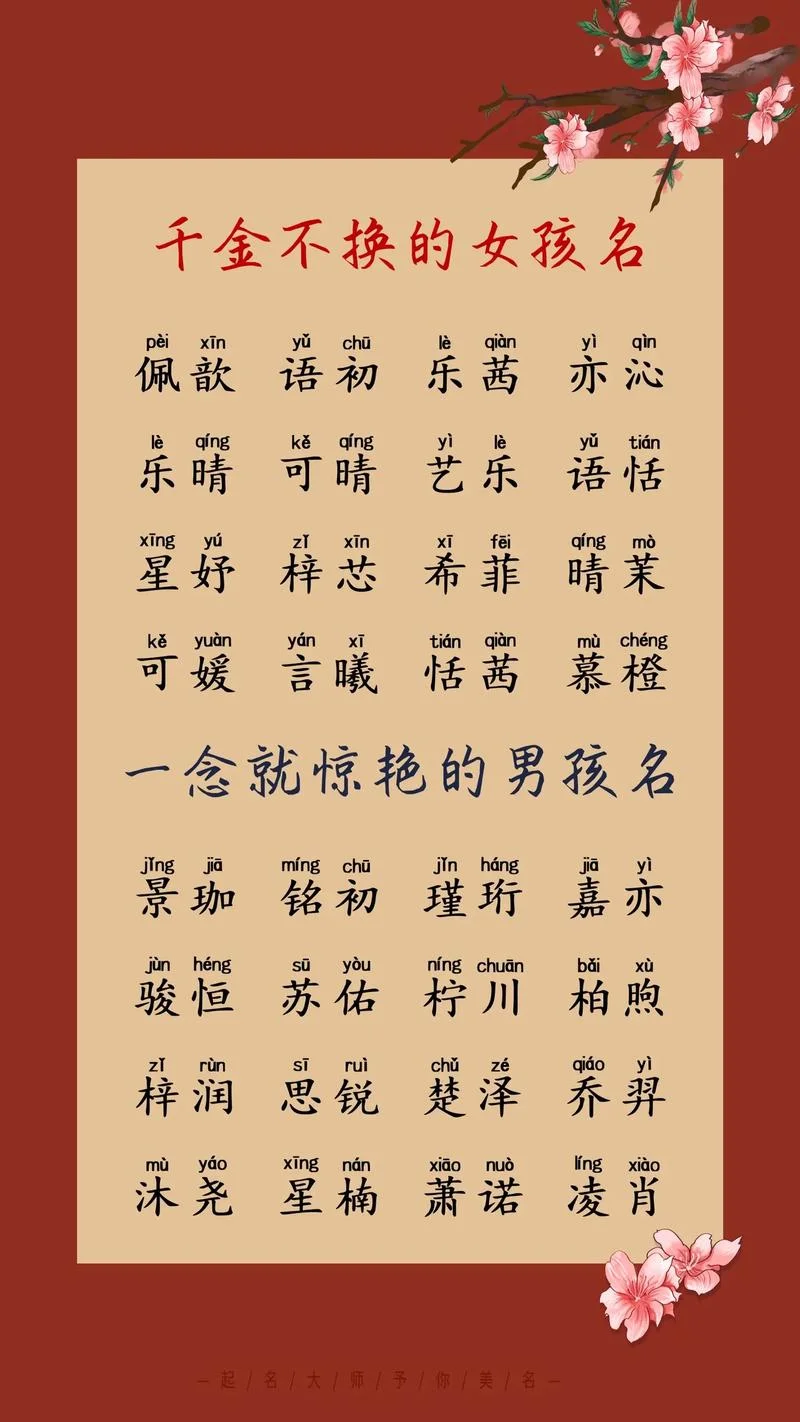 千金不换的女孩名
pèi xīn yǔ chū lè qiàn yì qìn
佩歆 语初 乐茜 亦沁
lè qíng kě qíng yì lè yǔ tián
乐晴 可晴 艺乐 语恬
xīng yú zǐ xīn xī fēi qíng mò
星妤 梓芯 希菲 晴茉
kě yuàn yán xī tián qiàn mù chéng
可媛 言曦 恬茜 慕橙
一念就惊艳的男孩名
jǐng jiā míng chū jǐn háng jiā yì
景珈 铭初 瑾珩 嘉亦
jùn héng sū yòu níng chuān bǎi xù
骏恒 苏佑 柠川 柏煦
zǐ rùn sī ruì chǔ zé qiáo yì
梓润 思锐 楚泽 乔羿
mù yáo xīng nán xiāo nuò líng xiào
沐尧 星楠 萧诺 凌肖
—起/名/大/师/予/你/美/名—